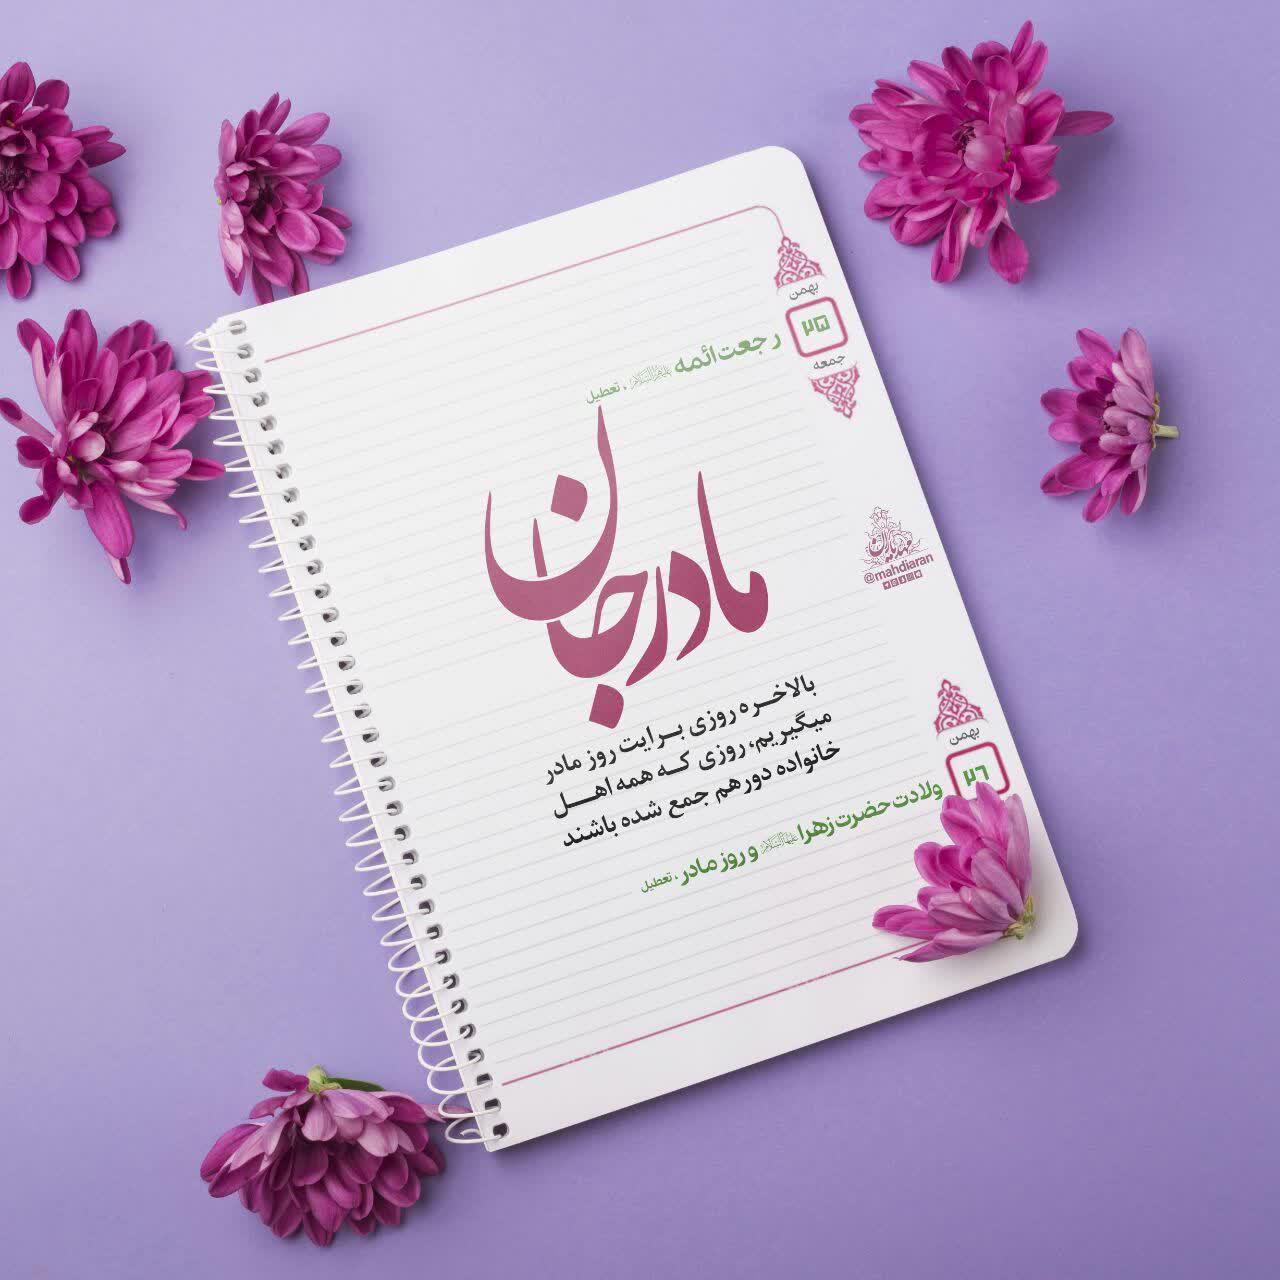 بهمن
۲۵
جمعه
رجعت ائمه علیهم‌السلام ، تعطیل
مادر جان
مهدیاران
@mahdiaran
بالاخره روزی برایت روز مادر
میگیریم، روزی که همه اهل
خانواده دور هم جمع شده باشند
بهمن
۲۶
ولادت حضرت زهرا علیهاالسلام و روز مادر ، تعطیل